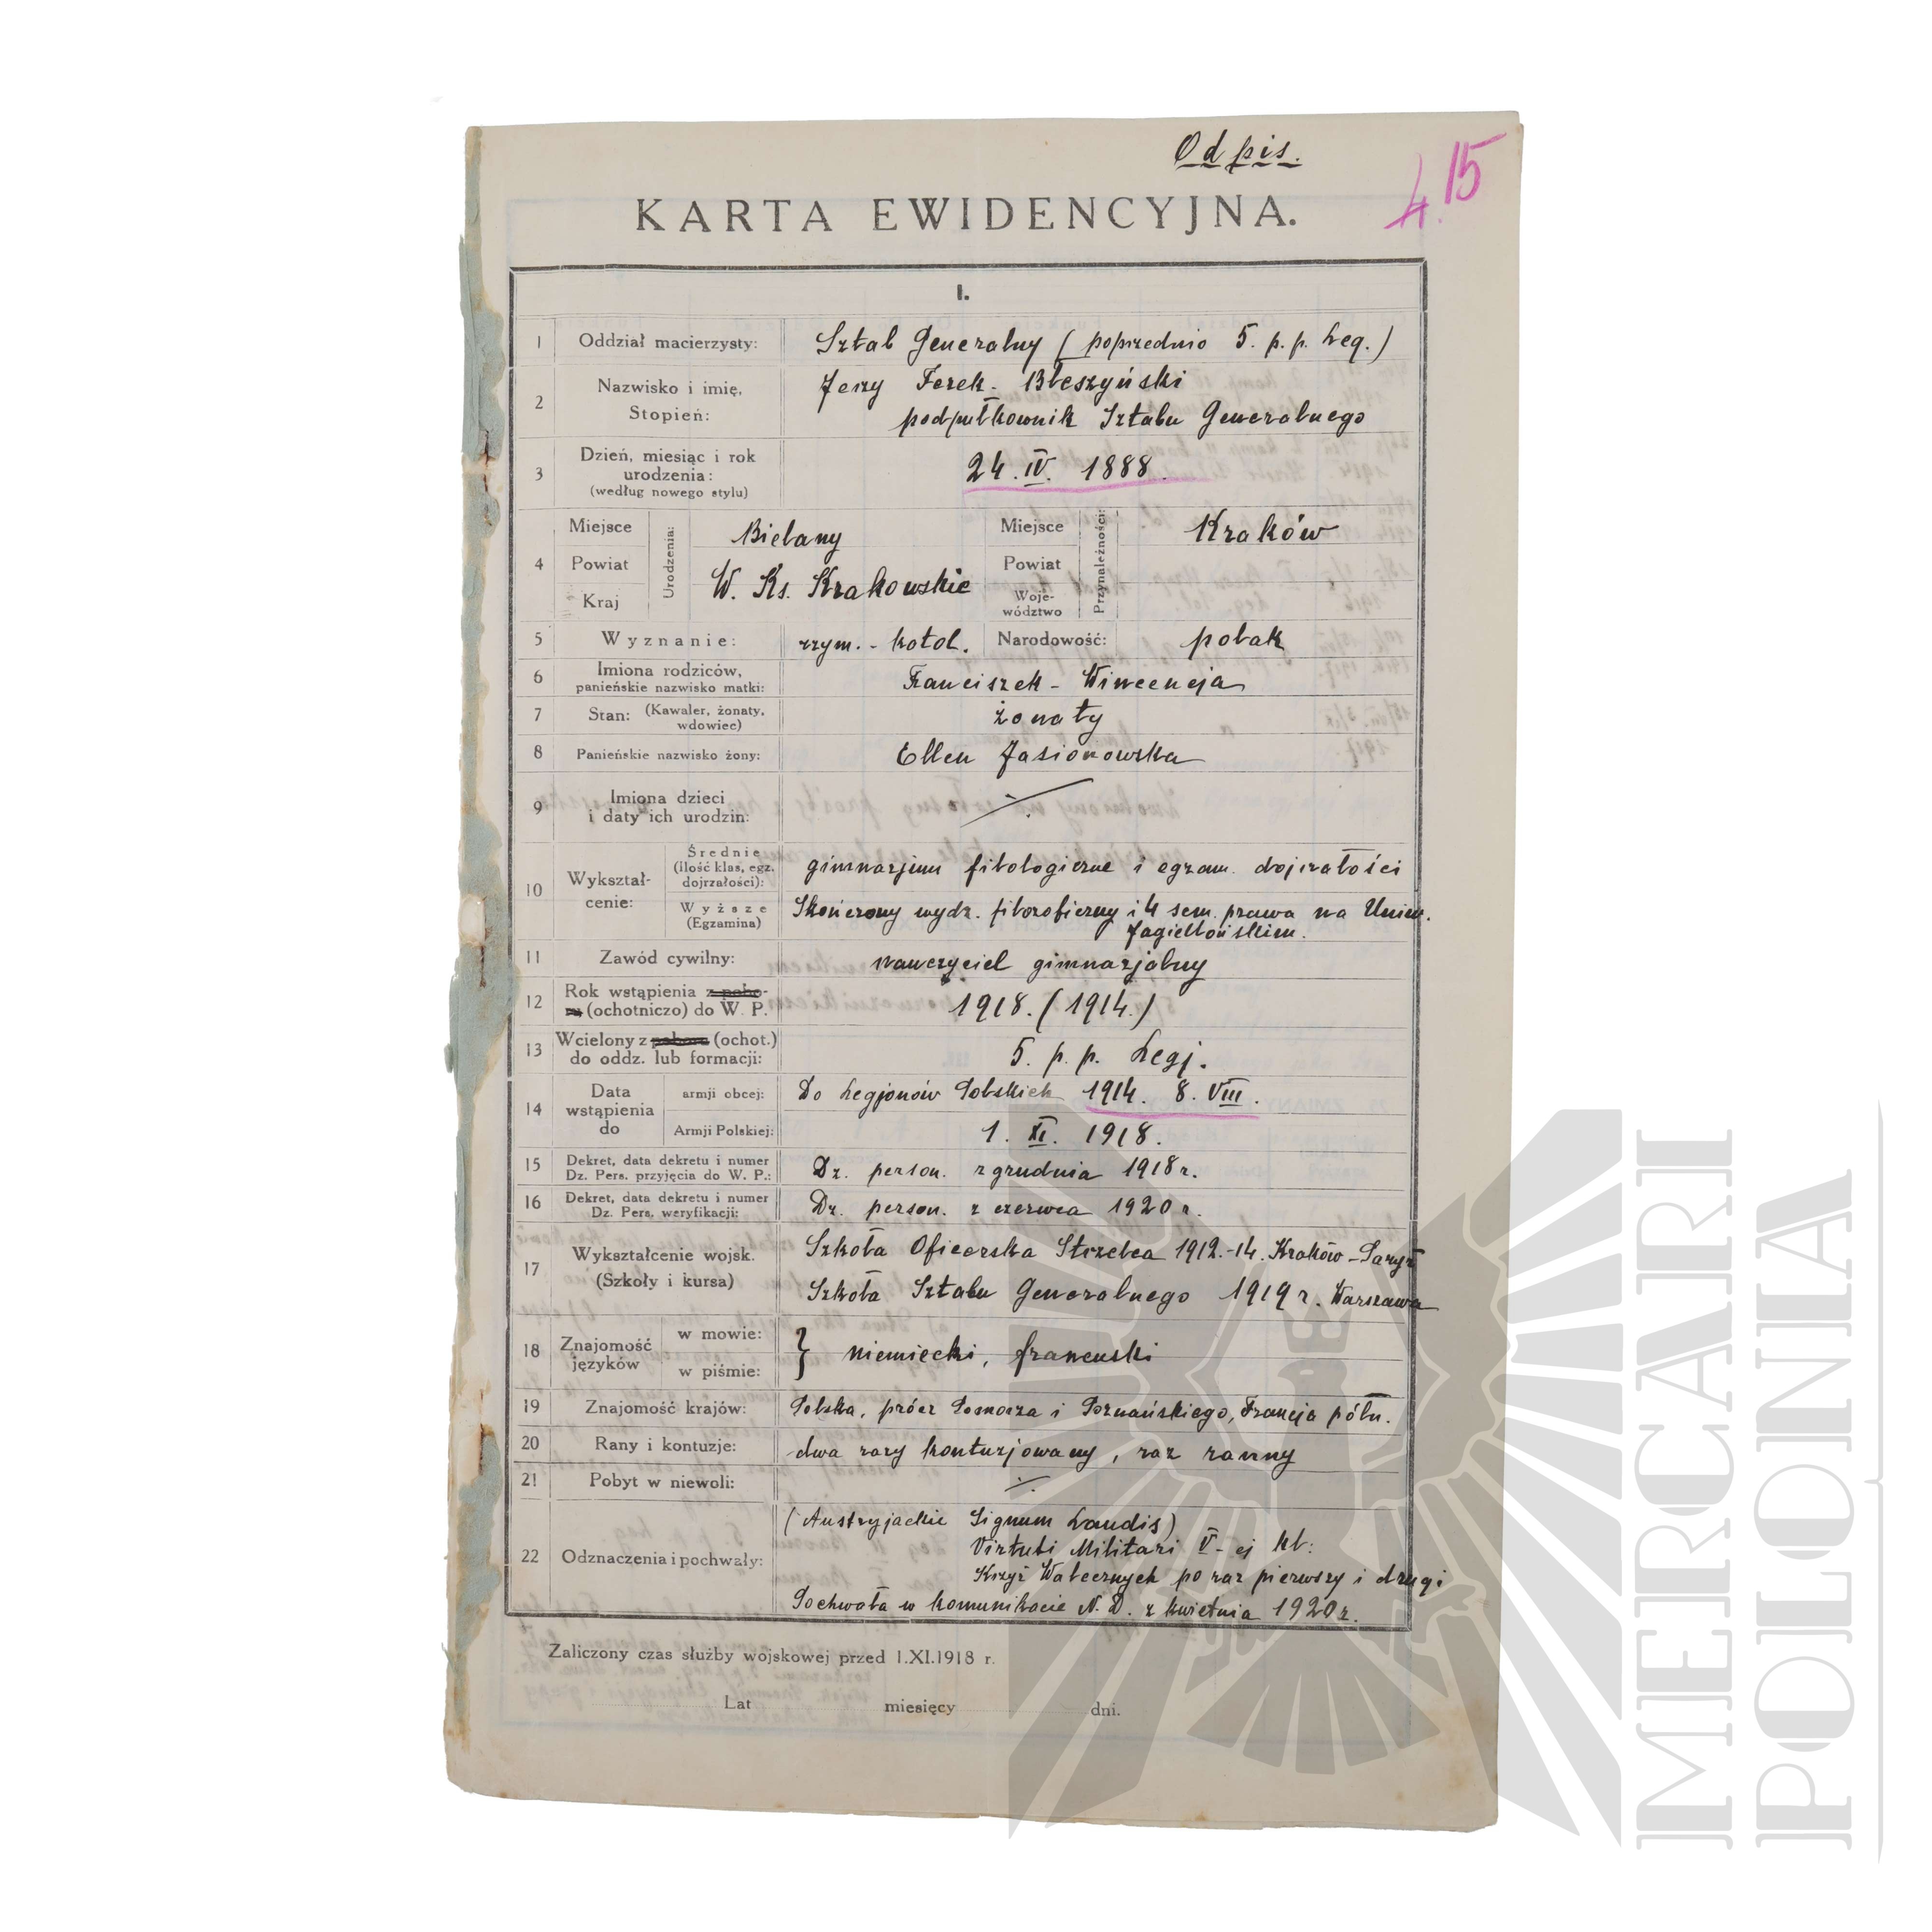 Odpis.
4. 15
KARTA EWIDENCYJNA.
I.
1 Oddział macierzysty: Sztab Generalny (poprzednio 5. p. p. Leg.)
2 Nazwisko i imię, Jerzy Ferek-Błeszyński
Stopień: podpułkownik Sztabu Generalnego
3 Dzień, miesiąc i rok
urodzenia: 24. IV. 1888.
(według nowego stylu)
4 Miejsce Urodzenia: Bielany Miejsce Przynależności: Kraków
Powiat Powiat
Kraj W. Ks. Krakowskie Woje-
wództwo
5 Wyznanie: rzym.-katol. Narodowość: polak
6 Imiona rodziców,
panieńskie nazwisko matki: Franciszek - Wincencja
7 Stan: (Kawaler, żonaty, żonaty
wdowiec)
8 Panieńskie nazwisko żony: Ellen Jasionowska
9 Imiona dzieci
i daty ich urodzin:
10 Wykształ-
cenie:
Średnie
(ilość klas, egz. gimnazjum filologiczne i egzam. dojrzałości
dojrzałości):
Wyższe Skończony wydz. filozoficzny i 4 sem. prawa na Uniw.
(Egzamina) Jagiellońskim.
11 Zawód cywilny: nauczyciel gimnazjalny
12 Rok wstąpienia z pobo-
ru (ochotniczo) do W. P. 1918. (1914.)
13 Wcielony z poboru (ochot.)
do oddz. lub formacji: 5. p. p. Legj.
14 Data
wstąpienia
do
armji obcej: Do Legjonów Polskich 1914. 8. VIII.
Armji Polskiej: 1. XI. 1918.
15 Dekret, data dekretu i numer
Dz. Pers. przyjęcia do W. P.: Dz. person. z grudnia 1918 r.
16 Dekret, data dekretu i numer
Dz. Pers. weryfikacji: Dz. person. z czerwca 1920 r.
17 Wykształcenie wojsk. Szkoła Oficerska Strzelca 1912.-14. Kraków-Paryż
(Szkoły i kursa) Szkoła Sztabu Generalnego 1919 r. Warszawa
18 Znajomość
języków
w mowie:
w piśmie: } niemiecki, francuski
19 Znajomość krajów: Polska, prócz Pomorza i Poznańskiego, Francja półn.
20 Rany i kontuzje: dwa razy kontuzjowany, raz ranny
21 Pobyt w niewoli:
22 Odznaczenia i pochwały: (Austryjackie Signum Laudis)
Virtuti Militari V-ej kl:
Krzyż Walecznych po raz pierwszy i drugi
Pochwała w komunikacie N. D. z kwietnia 1920 r.
Zaliczony czas służby wojskowej przed 1.XI.1918 r.
Lat miesięcy dni.
MERCARI
POLONIA